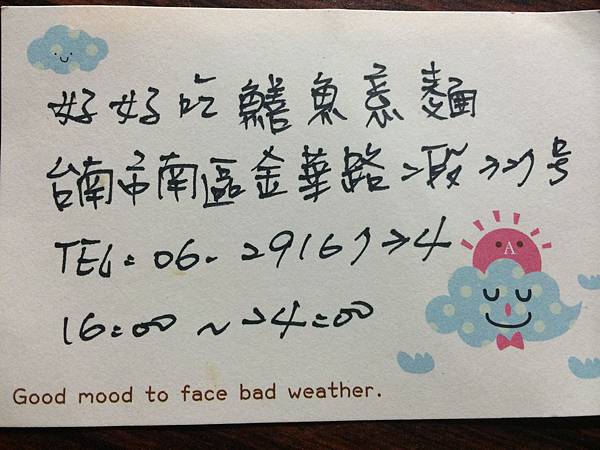 好好吃鱔魚意麵
台南市南區金華路二段227号
TEL:06-2916724
16:00~24:00
A
Good mood to face bad weather.